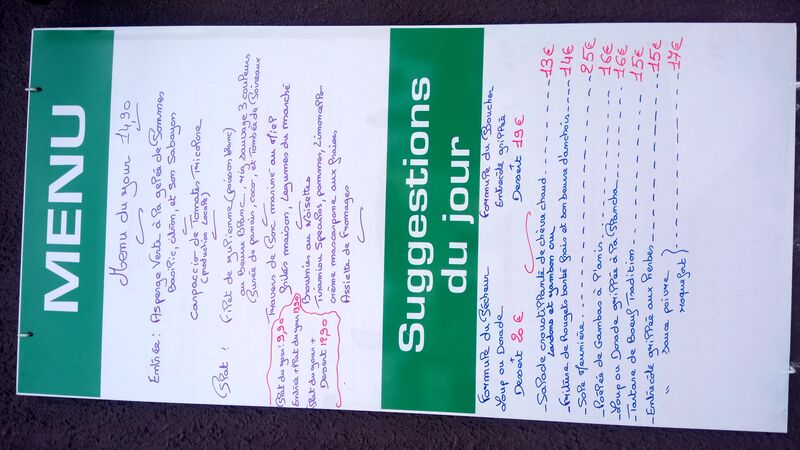 MENU
Menu du jour 14,90
Entrée : Asperge Verte à la gelée de Pommes
Basilic, citron, et son Sabayon
Carpaccio de Tomates Tricolore
(production Locale)
Plat : Filet de (poisson blanc)
au Beurre Blanc, riz sauvage 3 couleurs
Purée de panais, coco, et Tombée de Poireaux
Travers de Porc mariné au Miel
Grilles maison, Légumes du marché
Plat du jour : 9,90
Entrée + Plat du jour
Plat du jour +
Dessert 12,90
Brownies au Noisettes
Tiramisu Spéculos, pommes, Limoncello
crème mascarpone aux fraises
Assiette de Fromages
Suggestions
du jour
Formule du Pêcheur
Loup ou Dorade
+
Dessert 20€
Formule du Boucher
Entrecôte grillée
+
Dessert 19€
- Salade croustillante de chèvre chaud 13€
Lardons et jambon cru
- Friture de Rougets sauté frais et son beurre d'anchois 14€
- Sole Meunière 25€
- Poêlée de Gambas à l'anis 16€
- Loup ou Dorade grillée à la Plancha 16€
- Tartare de Boeuf Tradition 15€
- Entrecôte grillée aux herbes 15€
" sauce poivre }
roquefort } 17€